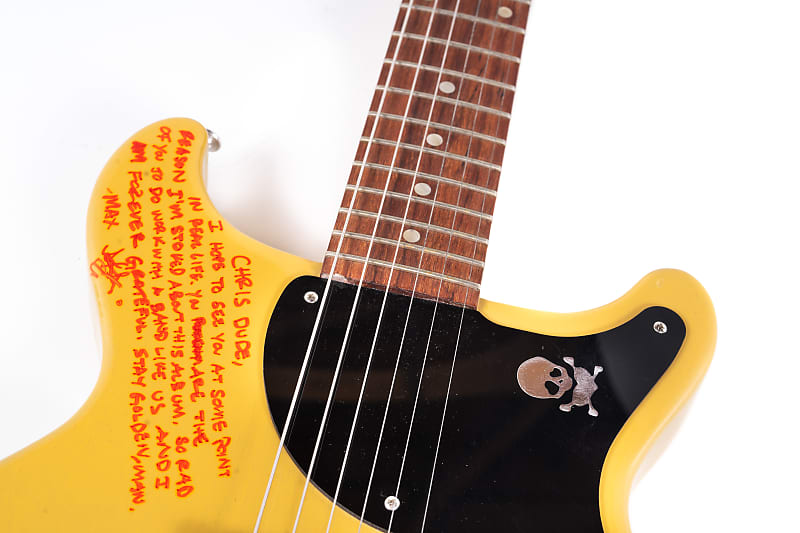 CHRIS DUDE,
I HOPE TO SEE YOU AT SOME POINT
IN REAL LIFE. YOU ARE THE
REASON I'M STOKED ABOUT THIS ALBUM, SO RAD
OF YOU TO DO WORK WITH A BAND LIKE US AND I
AM FOREVER GRATEFUL. STAY GOLDEN, MAN.
-MAX